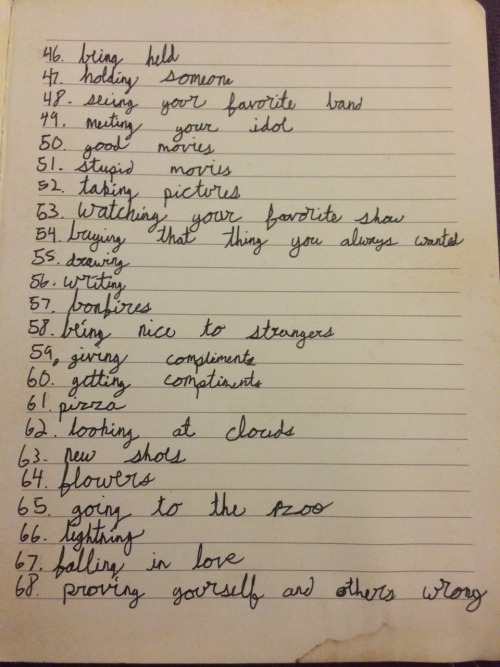 46. being held
47. holding someone
48. seeing your favorite band
49. meeting your idol
50. good movies
51. stupid movies
52. taking pictures
53. watching your favorite show
54. buying that thing you always wanted
55. drawing
56. writing
57. bonfires
58. being nice to strangers
59. giving compliments
60. getting compliments
61. pizza
62. looking at clouds
63. new shoes
64. flowers
65. going to the zoo
66. lightning
67. falling in love
68. proving yourself and others wrong